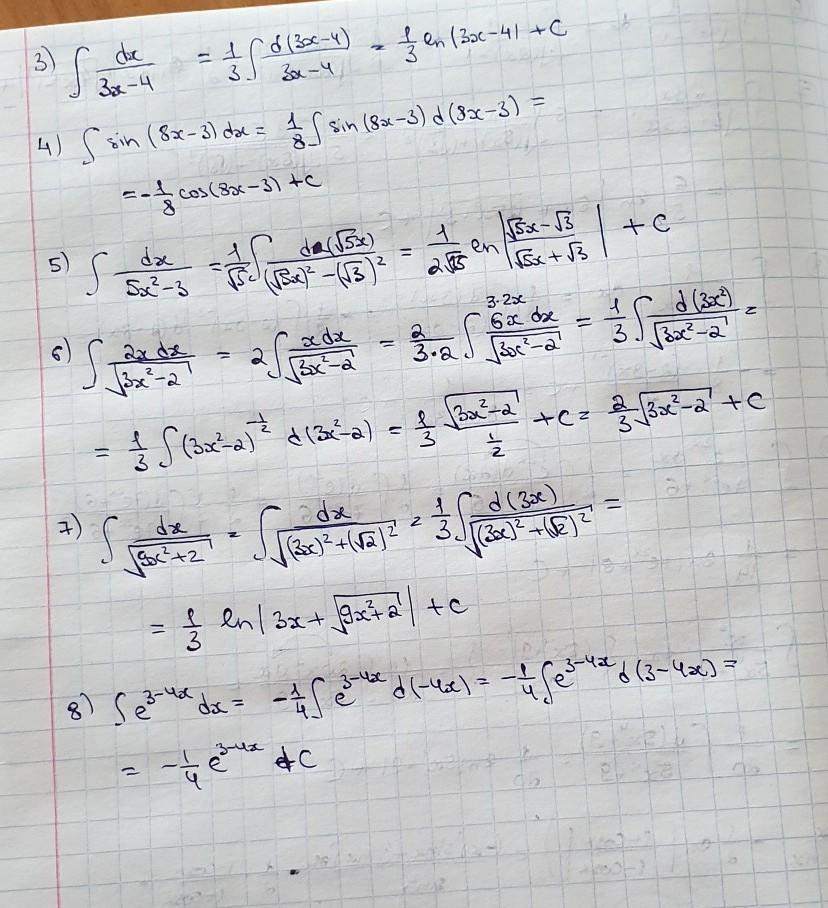 3) ∫ dx/(3x-4) = 1/3 ∫ d(3x-4)/(3x-4) = 1/3 ln|3x-4| + C
4) ∫ sin (8x-3) dx = 1/8 ∫ sin (8x-3) d(8x-3) =
= -1/8 cos(8x-3) + C
5) ∫ dx/(5x²-3) = 1/√5 ∫ d(√5x)/((√5x)²-(√3)²) = 1/(2√15) ln|(√5x-√3)/(√5x+√3)| + C
6) ∫ 2x dx/√(3x²-2) = 2∫ x dx/√(3x²-2) = 2/(3·2) ∫ 3·2x 6x dx/√(3x²-2) = 1/3 ∫ d(3x²)/√(3x²-2) =
= 1/3 ∫ (3x²-2)^(-1/2) d(3x²-2) = 1/3 √(3x²-2)/(1/2) + C = 2/3 √(3x²-2) + C
7) ∫ dx/√(9x²+2) = ∫ dx/√((3x)²+(√2)²) = 1/3 ∫ d(3x)/√((3x)²+(√2)²) =
= 1/3 ln|3x+√(9x²+2)| + C
8) ∫ e^(3-4x) dx = -1/4 ∫ e^(3-4x) d(-4x) = -1/4 ∫ e^(3-4x) d(3-4x) =
= -1/4 e^(3-4x) + C